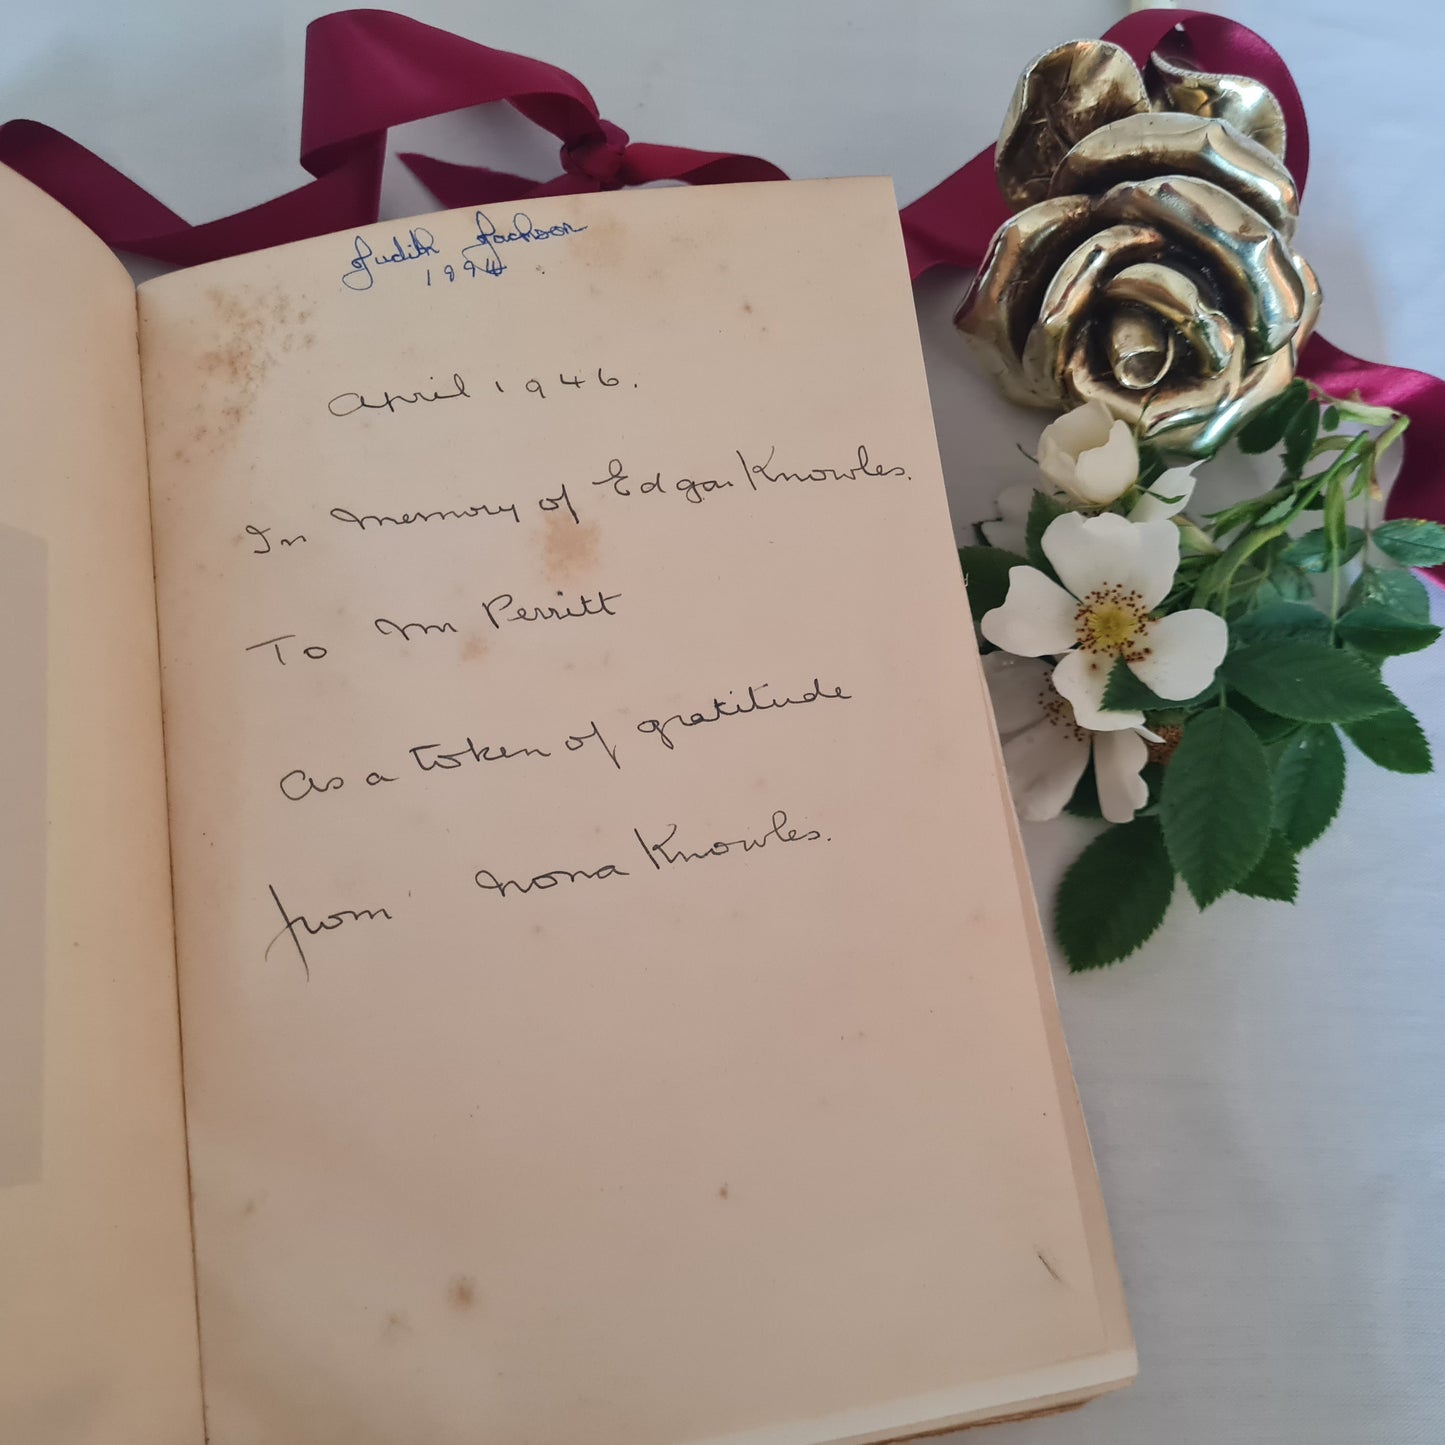 Judith Jackson
1994
April 1946.
In memory of Edgar Knowles.
To Mr Perritt
as a token of gratitude
from Nona Knowles.